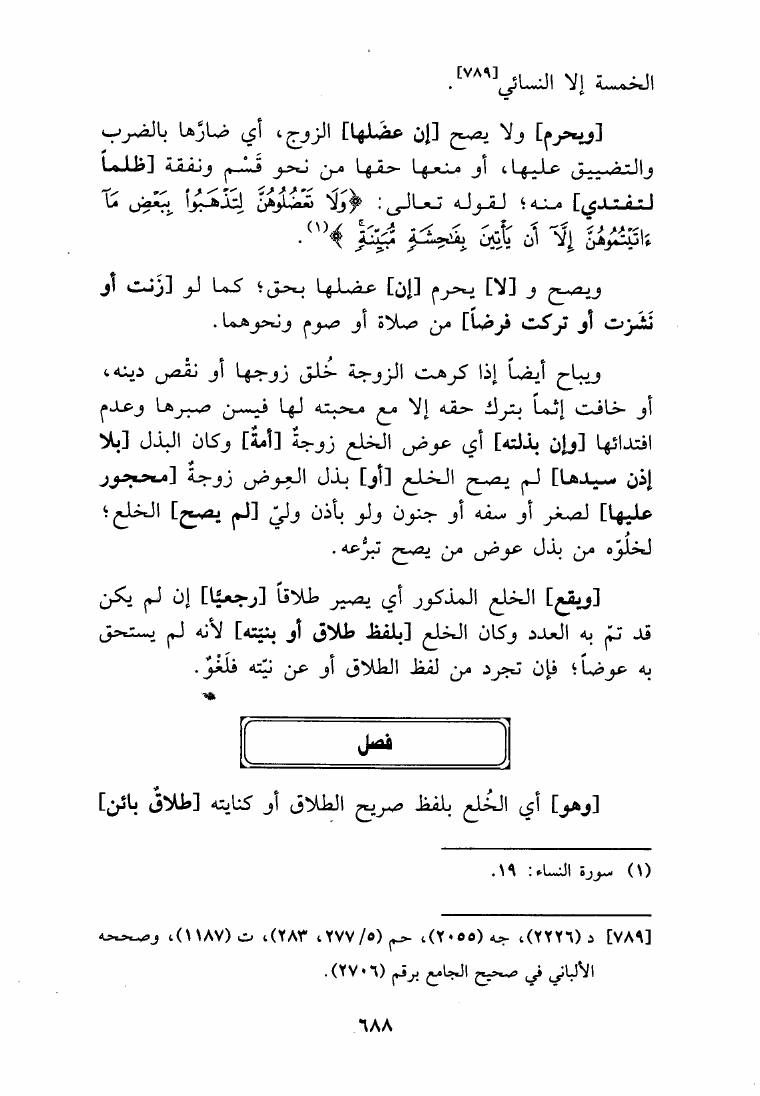 الخمسة إلا النسائي[٧٨٩].
[ويحرم] ولا يصح [إن عضَلها] الزوج، أي ضارَّها بالضرب
والتضييق عليها، أو منعها حقها من نحو قَسْم ونفقة [ظلماً
لتفتدي] منه؛ لقوله تعالى: ﴿وَلَا تَعْضُلُوهُنَّ لِتَذْهَبُوا۟ بِبَعْضِ مَآ
ءَاتَيْتُمُوهُنَّ إِلَّآ أَن يَأْتِينَ بِفَٰحِشَةٍ مُّبَيِّنَةٍ ۚ﴾(١).
ويصح و [لا] يحرم [إن] عضلها بحق؛ كما لو [زَنت أو
نَشَزت أو تركت فرضاً] من صلاة أو صوم ونحوهما.
ويباح أيضاً إذا كرهت الزوجة خُلق زوجها أو نقْص دينه،
أو خافت إثماً بترك حقه إلا مع محبته لها فيسن صبرها وعدم
افتدائها [وإن بذلته] أي عوض الخلع زوجةٌ [أمةٌ] وكان البذل [بلا
إذن سيدها] لم يصح الخلع [أو] بذل العِوض زوجةٌ [محجور
عليها] لصغر أو سفه أو جنون ولو بأذن وليّ [لم يصح] الخلع؛
لخلُوّه من بذل عوض من يصح تبرُّعه.
[ويقع] الخلع المذكور أي يصير طلاقاً [رجعيًا] إن لم يكن
قد تمّ به العدد وكان الخلع [بلفظ طلاق أو بنيّته] لأنه لم يستحق
به عوضاً؛ فإن تجرد من لفظ الطلاق أو عن نيّته فلَغْوٌ.
فصل
[وهو] أي الخُلع بلفظ صريح الطلاق أو كنايته [طلاقٌ بائن]
(١) سورة النساء: ١٩.
[٧٨٩] د (٢٢٢٦)، جه (٢٠٥٥)، حم (٥/ ٢٧٧، ٢٨٣)، ت (١١٨٧)، وصححه
الألباني في صحيح الجامع برقم (٢٧٠٦).
٦٨٨